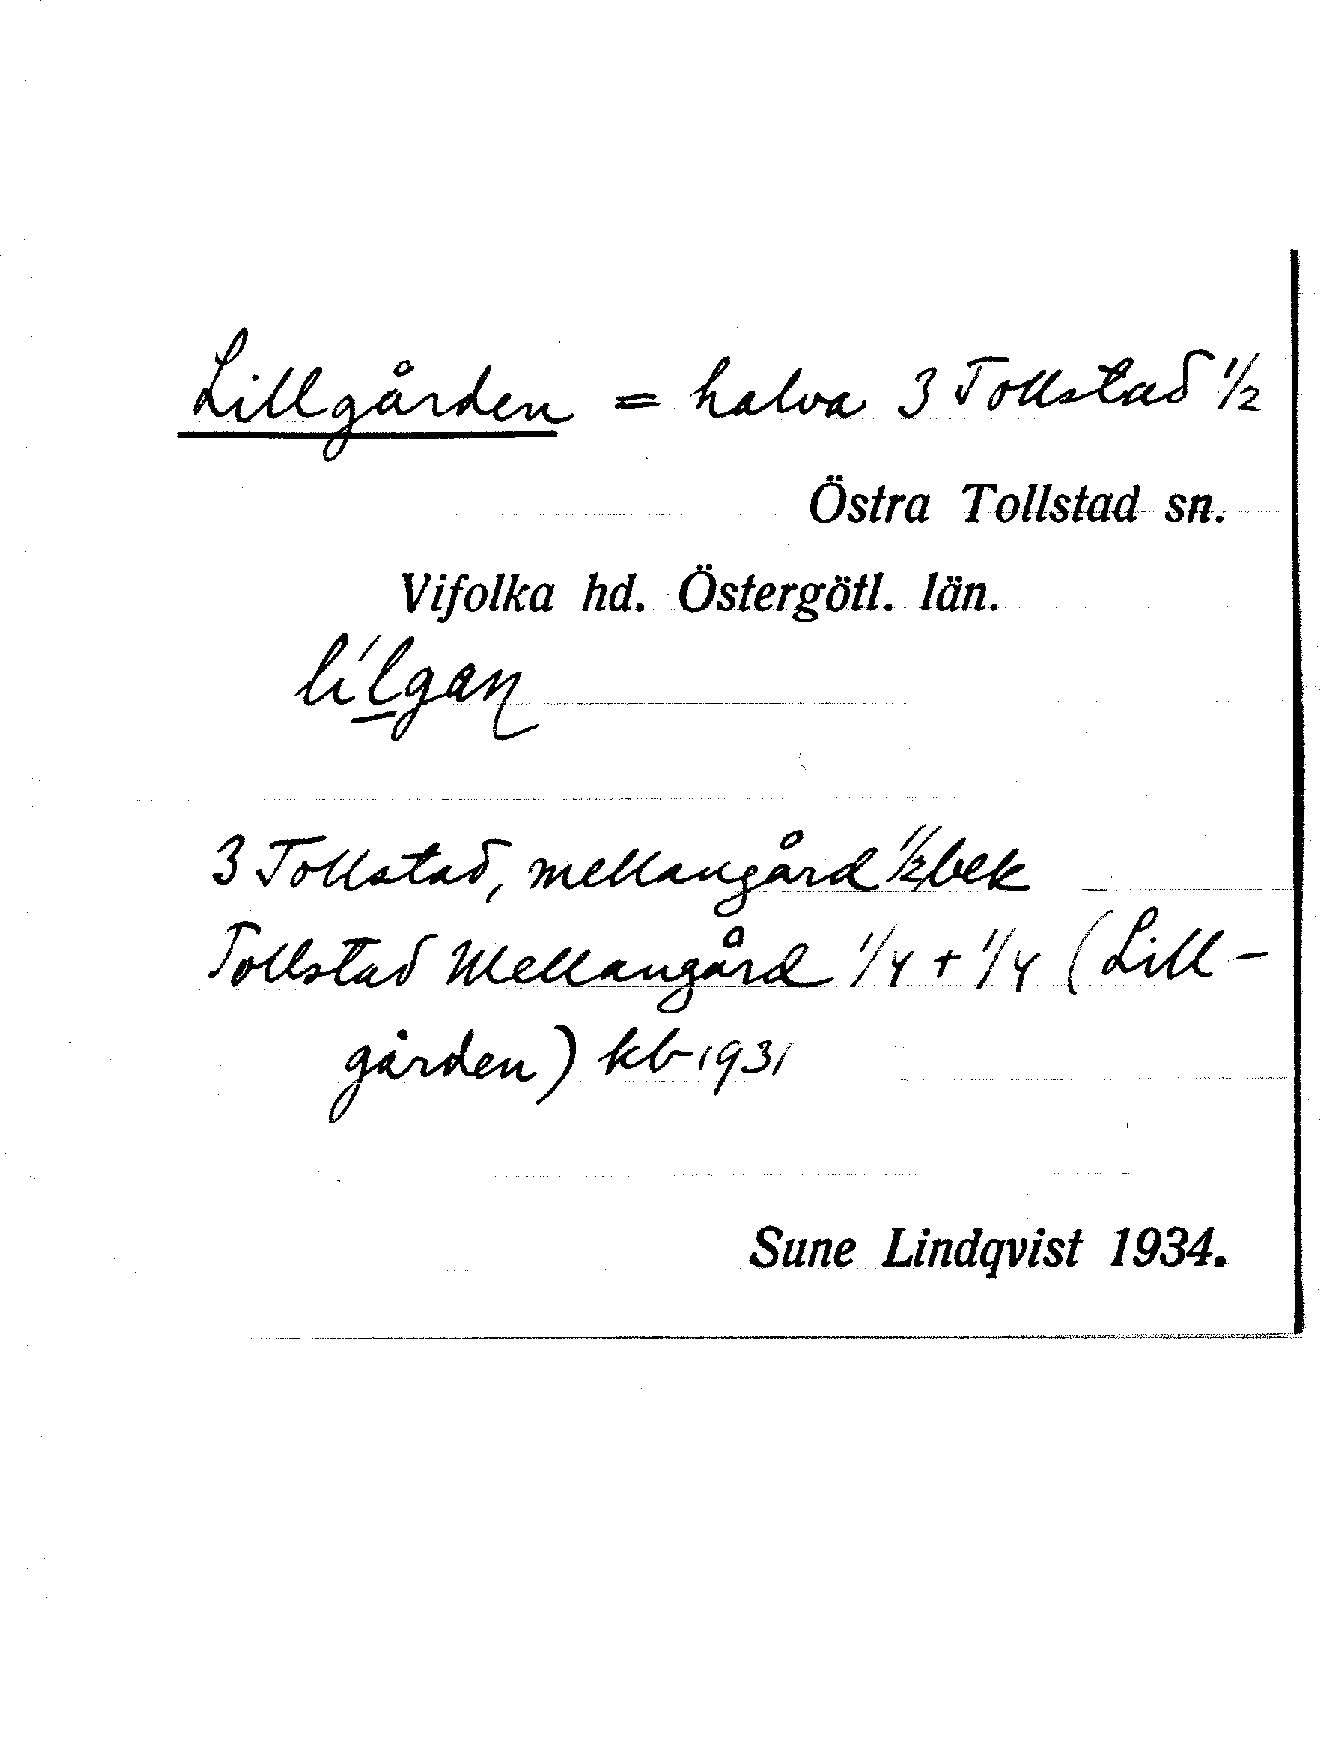 Lillgården = halva 3 Tollstad 1/2
Östra Tollstad sn.
Vifolka hd. Östergötl. län.
3 Tollstad, mellangård 1/2 bek
Tollstad Mellangård 1/4 + 1/4 (Lill-
gården) kb 1931
Sune Lindqvist 1934.